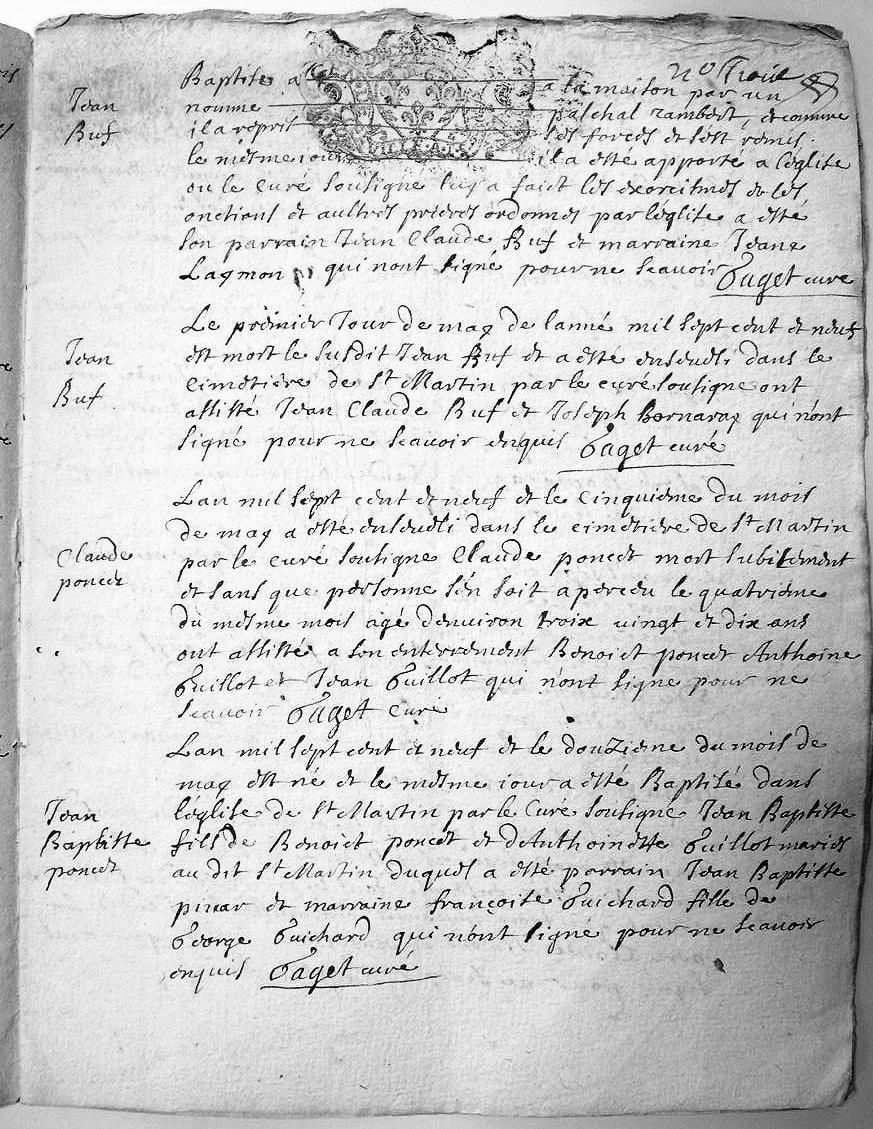 no Troisé
Jean
Buf
Baptisé a la maison par un
nomme paschal rambert, et comme
il a repris ses forces et sest remis
le mesme iour il a esté apporté a léglise
ou le curé sousigne luy a faict les exorcismes et les
onctions et aultres prieres ordonnes par léglise a esté
son parrain Jean Claude Buf et marraine Jeane
Lagmon qui nont signé pour ne scauoir Gaget curé
Jean
Buf
Le premier Jour de may de lanné mil sept cent et neuf
est mort le susdit Jean Buf et a esté enseueli dans le
cimetiere de St Martin par le curé sousigne ont
assisté Jean Claude Buf et Joseph Bornaraz qui nónt
signé pour ne scauoir enquis Gaget curé
Claude
poncet
Lan mil sept cent et neuf et le cinquieme du mois
de may a esté enseueli dans le cimetiere de St Martin
par le curé sousigne Claude poncet mort subitement
et sans que personne sén soit aperceu le quatrieme
du mesme mois agé denuiron troix uingt et dix ans
ont assisté a son enterrement Benoict poncet Anthoine
Guillot et Jean Guillot qui nónt signe pour ne
scauoir Gaget curé
Jean
Baptiste
poncet
Lan mil sept cent et neuf et le douzieme du mois de
may est né et le mesme iour a esté Baptisé dans
léglise de St Martin par le Curé sousigné Jean Baptiste
fils de Benoict poncet et dAnthoinette Guillot mariés
au dit St Martin duquel a esté parrain Jean Baptiste
piuar et marraine françoise Guichard fille de
George Guichard qui nónt signé pour ne scauoir
enquis Gaget curé